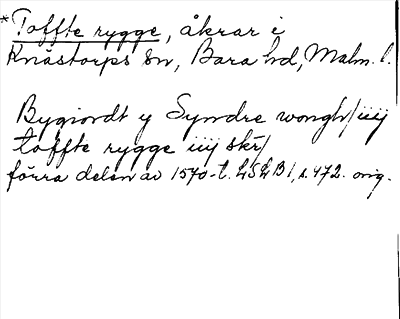 *Toffte rygge, åkrar i
Knästorps sn, Bara hd, Malm. l.
Bygiordt y Syndre wongh/iiij
toffte rygge iiij skr/
förra delen av 1570-t. LSLB1, s. 472. orig.